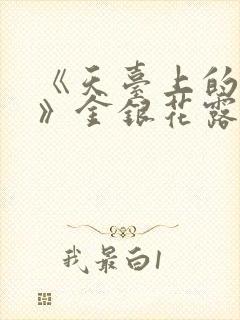 《天臺上的
》金銀花露
我最白1